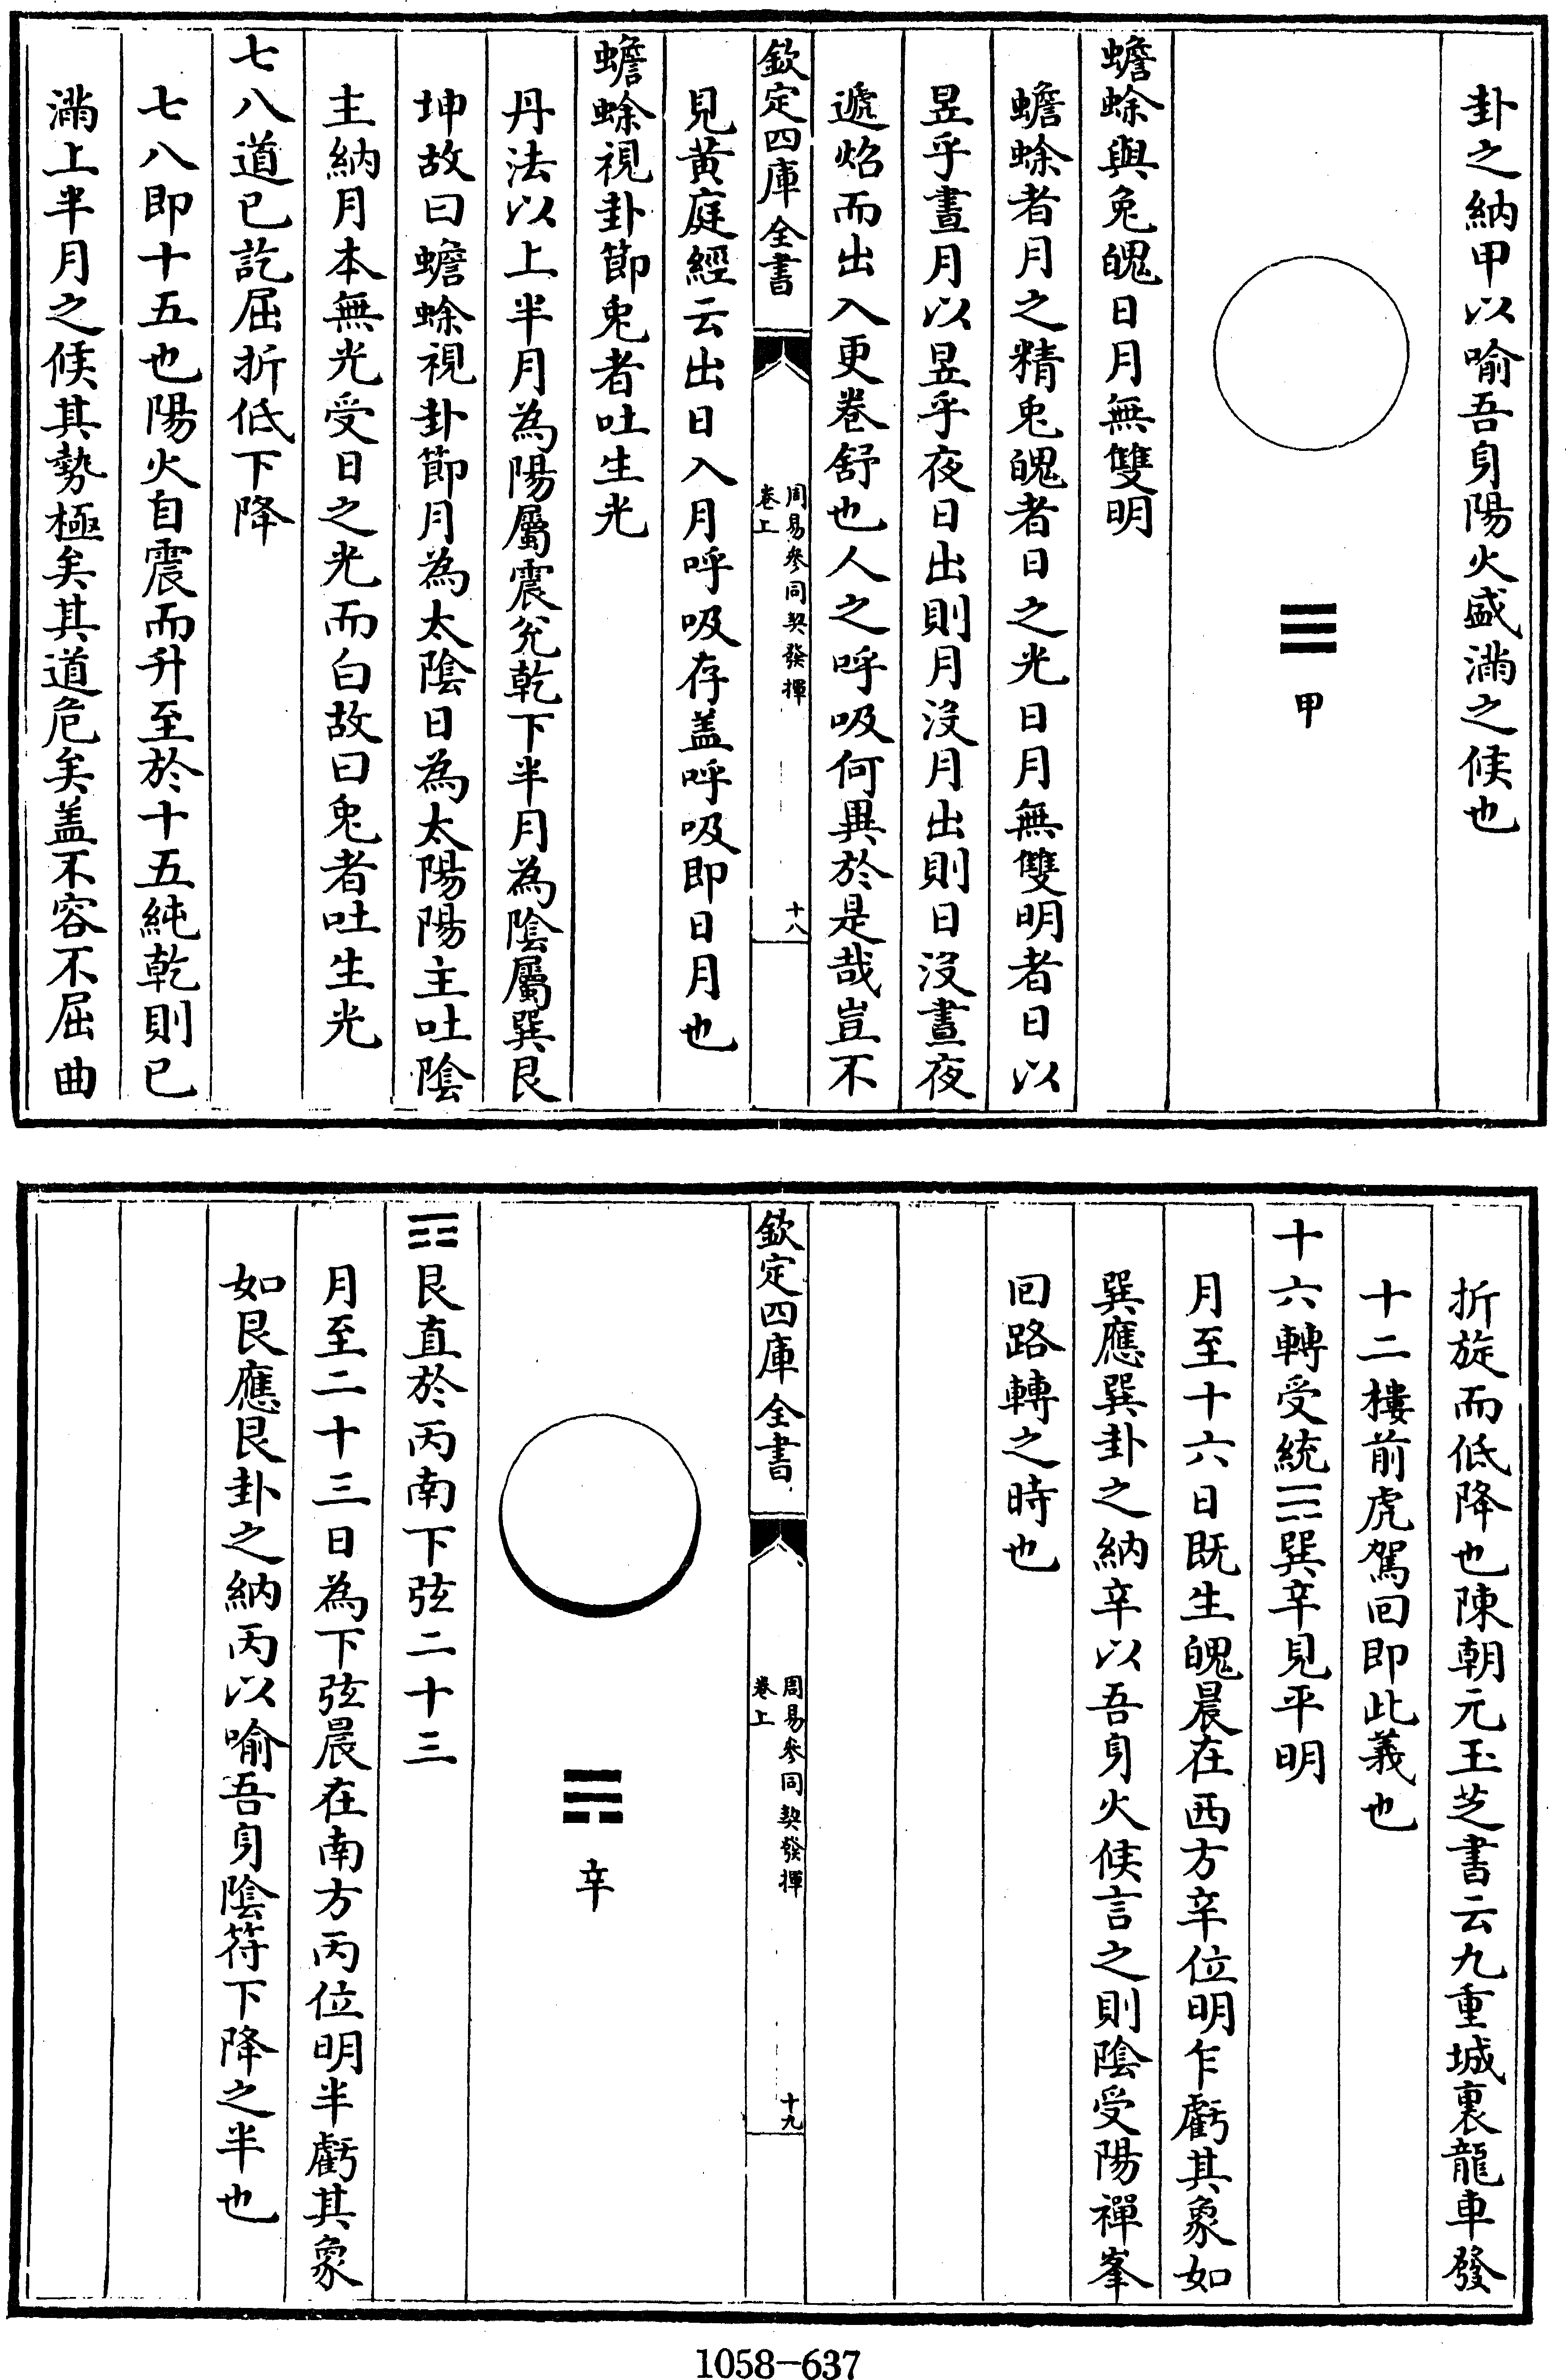 卦之納甲以喻吾身陽火盛滿之候也
☰
甲
蟾蜍與兎魄日月無雙明
蟾蜍者月之精兎魄者日之光日月無雙明者日以
昱乎晝月以昱乎夜日出則月沒月出則日沒晝夜
遞焰而出入更卷舒也人之呼吸何異於是哉豈不
欽定四庫全書
周易參同契發揮
卷上
十八
見黄庭經云出日入月呼吸存盖呼吸即日月也
蟾蜍視卦節兎者吐生光
丹法以上半月為陽屬震兊乾下半月為陰屬巽艮
坤故曰蟾蜍視卦節月為太陰日為太陽陽主吐陰
主納月本無光受日之光而白故曰兎者吐生光
七八道已訖屈折低下降
七八即十五也陽火自震而升至於十五純乾則已
滿上半月之候其勢極矣其道危矣盖不容不屈曲
折旋而低降也陳朝元玉芝書云九重城裏龍車發
十二樓前虎駕回即此義也
十六轉受統☴巽辛見平明
月至十六日既生魄晨在西方辛位明乍虧其象如
巽應巽卦之納辛以吾身火候言之則陰受陽禪峯
回路轉之時也
欽定四庫全書
周易參同契發揮
卷上
十九
☴
辛
☶艮直於丙南下弦二十三
月至二十三日為下弦晨在南方丙位明半虧其象
如艮應艮卦之納丙以喻吾身陰符下降之半也
1058-637